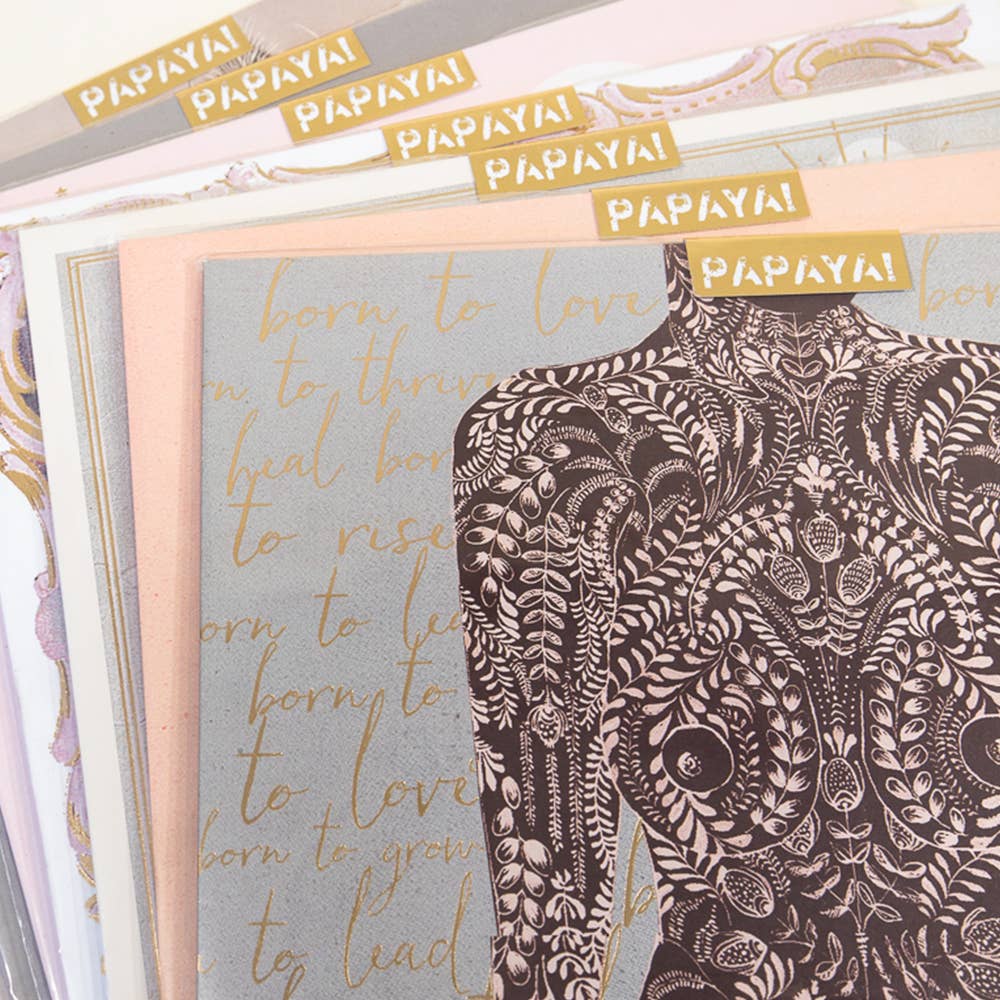 PAPAYA!
PAPAYA!
PAPAYA!
PAPAYA!
PAPAYA!
PAPAYA!
PAPAYA!
born to love
to thrive
heal born
to rise
born to
born to
to love
born to grow
to lead